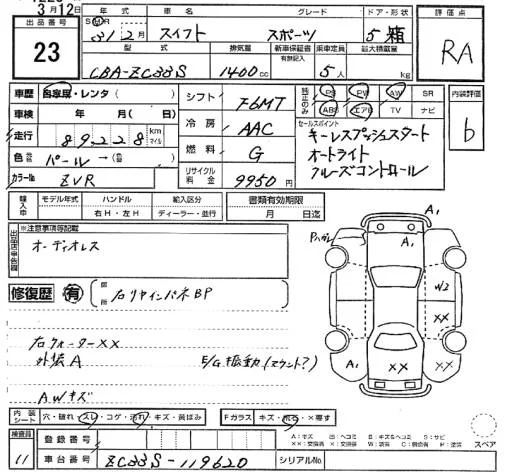 3月12日
出品番号 23
年式 車名 グレード ドア・形状
SHR 31年2月 スイフト スポーツ 5 箱
型式 排気量 新車保証書 有無記入 乗車定員 最大積載量
CBA-ZC33S 1400cc 5人 kg
評価点 RA
内装評価 b
車歴 自家用・レンタ( )
車検 年 月( 日)
走行 89,228 km マイル
色 パール→( )
カラーNo ZVR
シフト F6MT
冷房 AAC
燃料 G
リサイクル料金 9950円
純正のみ PS PW AW SR
ABS エアB TV ナビ
セールスポイント
キーレスプッシュスタート
オートライト
クルーズコントロール
輸入車 モデル年式 ハンドル 輸入区分 書類有効期限
年 右H・左H ディーラー・並行 月 日迄
出品店申告欄 ※注意事項等記載
オーディオレス
修復歴 有 箇所 右リヤインパネBP
右クォーターXX
外装A E/G振動(マウント?)
A.Wキズ
Pハガレ A1 A1 W2 XX A1 XX XX
内装シート 穴・破れ・スレ・コゲ・汚れ・キズ・黄ばみ
Fガラス キズ・飛石・×要す
A:キズ U:ヘコミ B:キズ&ヘコミ S:サビ
スペア
検査員 11
登録番号
車台番号 ZC33S-119620 シリアルNo